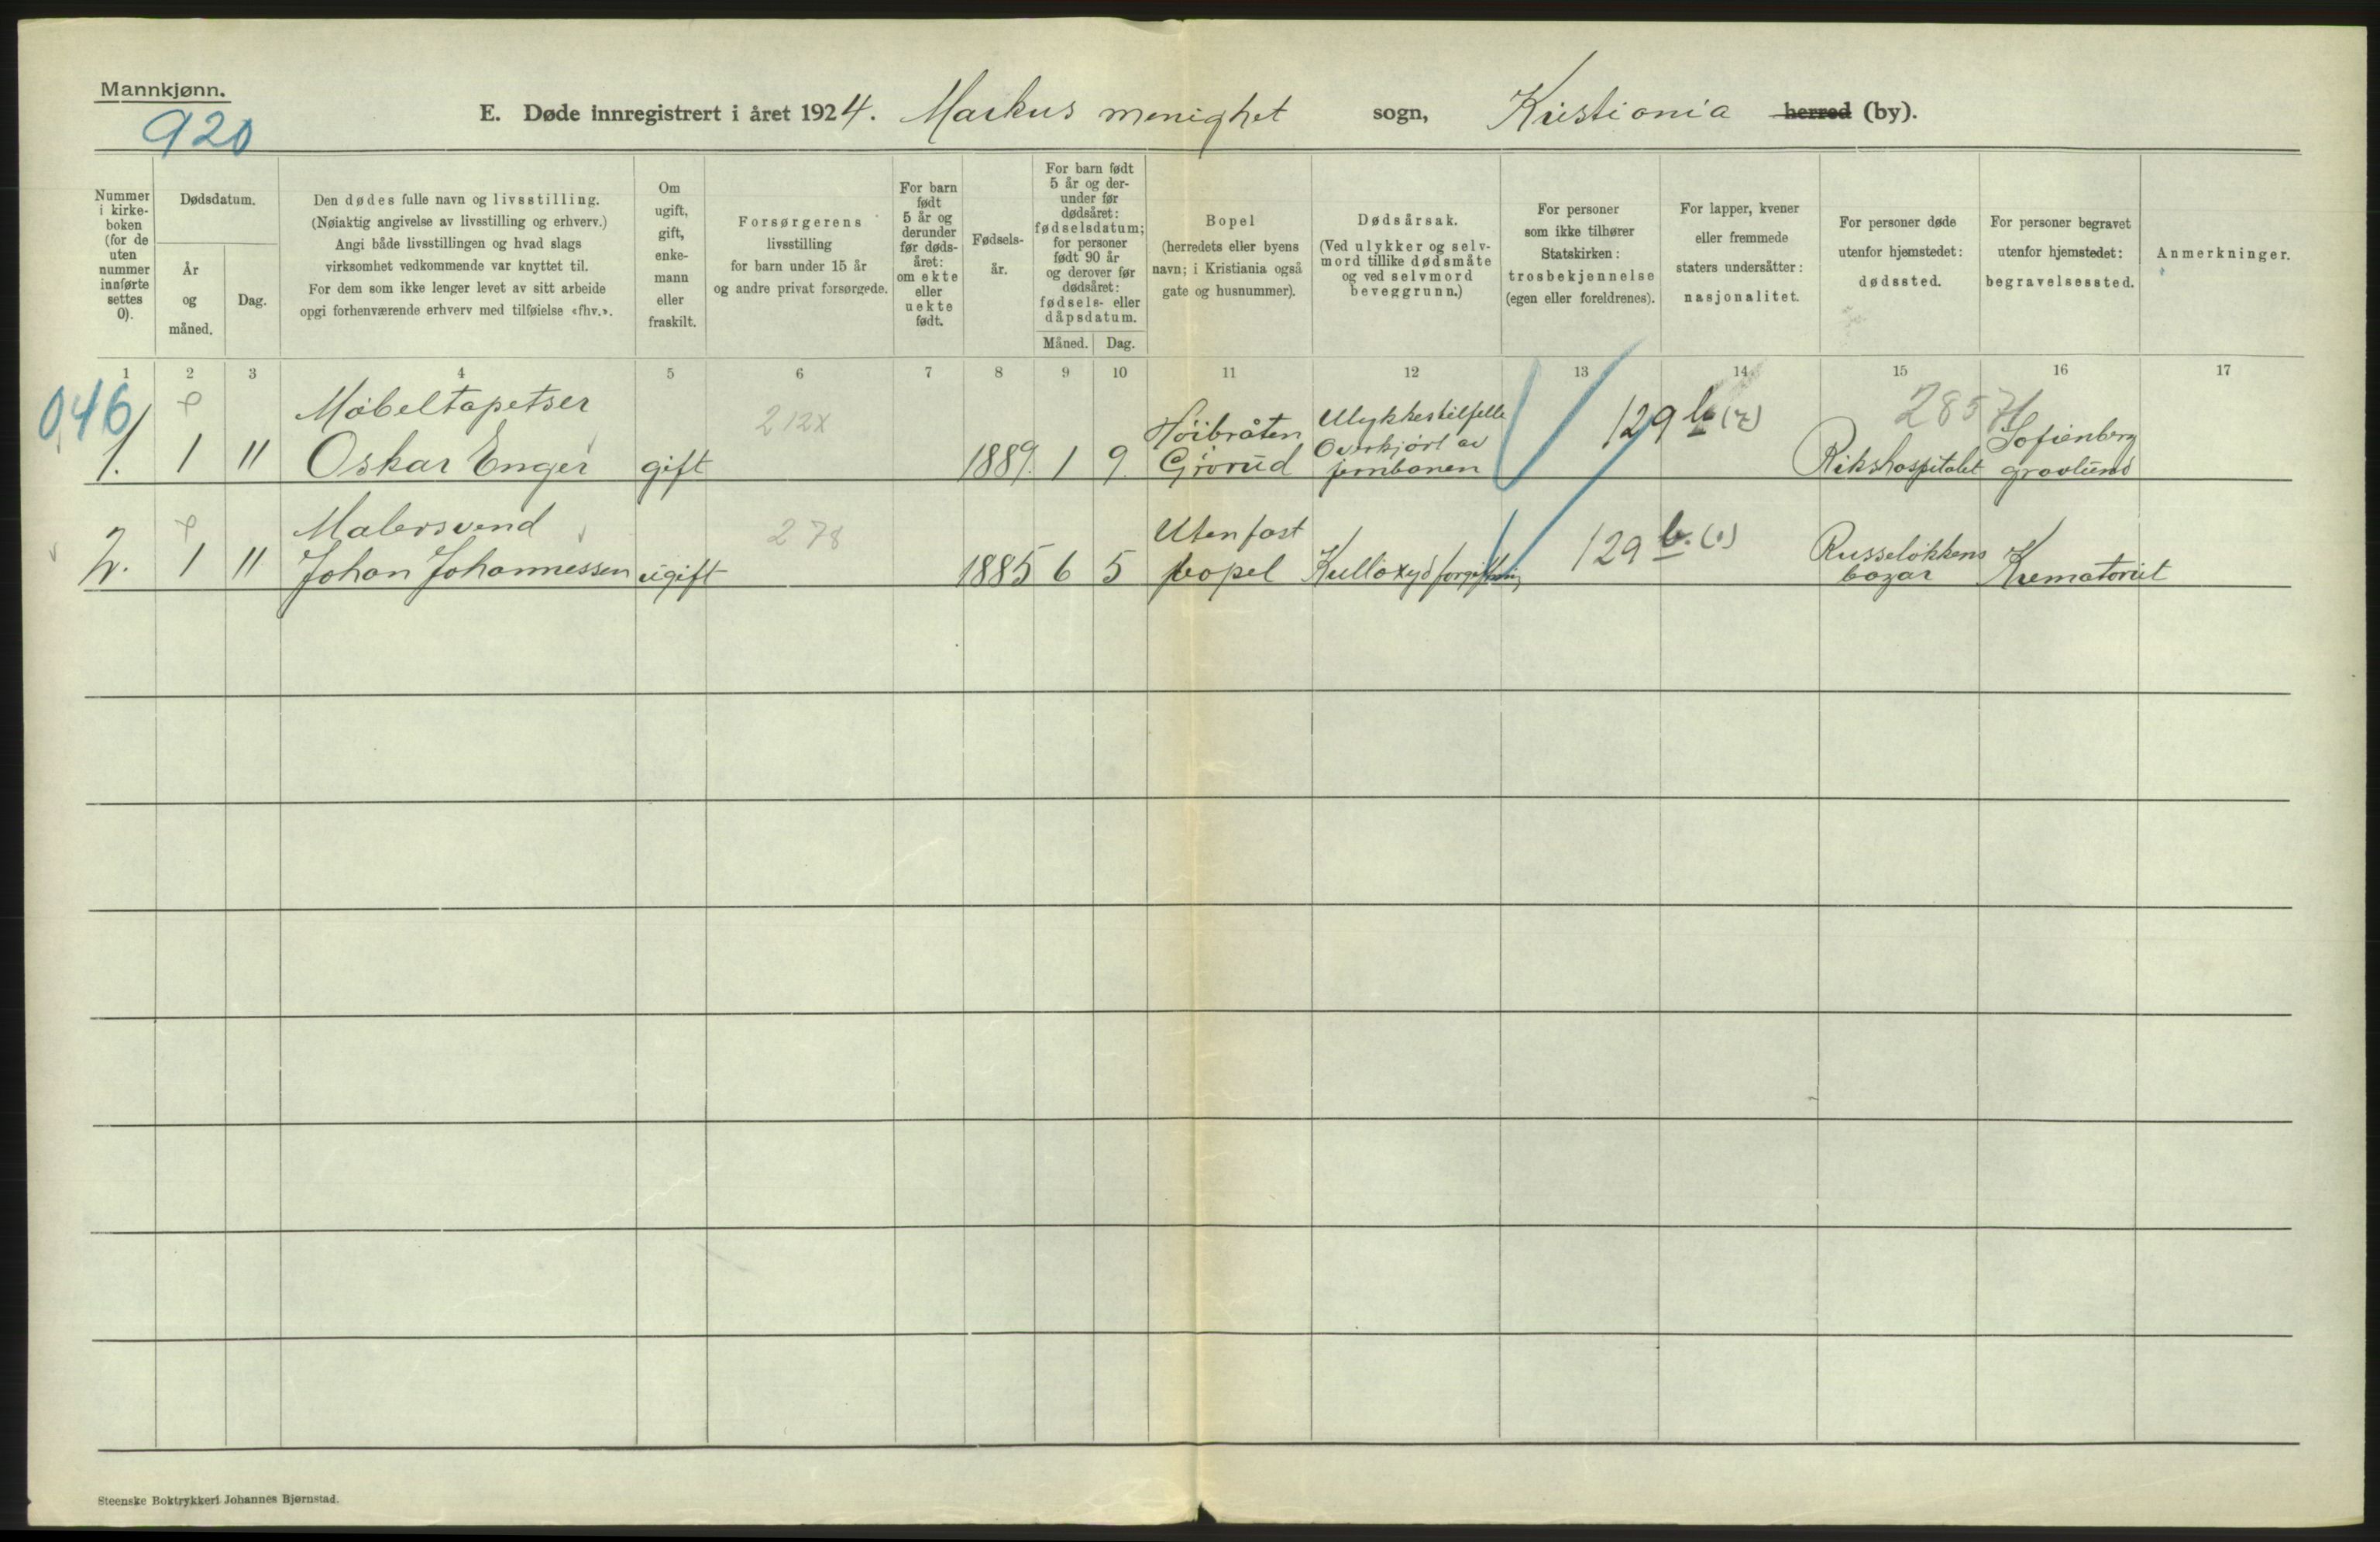 Mannkjønn.
920
E. Døde innregistrert i året 1924. Markus menighet sogn, Kristiania herred (by).
Nummer i kirke-boken (for de uten nummer innførte settes 0).
Dødsdatum.
År og måned.
Dag.
Den dødes fulle navn og livsstilling.
(Nøiaktig angivelse av livsstilling og erhverv.)
Angi både livsstillingen og hvad slags
virksomhet vedkommende var knyttet til.
For dem som ikke lenger levet av sitt arbeide
opgi forhenværende erhverv med tilføielse «fhv.».
Om ugift, gift, enke-mann eller fraskilt.
Forsørgerens
livsstilling
for barn under 15 år
og andre privat forsørgede.
For barn født 5 år og derunder før døds-året: om ekte eller uekte født.
Fødsels-år.
For barn født 5 år og der-under før dødsåret: fødselsdatum; for personer født 90 år og derover før dødsåret: fødsels- eller dåpsdatum.
Måned. Dag.
Bopel
(herredets eller byens
navn; i Kristiania også
gate og husnummer).
Dødsårsak.
(Ved ulykker og selv-
mord tillike dødsmåte
og ved selvmord
beveggrunn.)
For personer
som ikke tilhører
Statskirken:
trosbekjennelse
(egen eller foreldrenes).
For lapper, kvener
eller fremmede
staters undersåtter:
nasjonalitet.
For personer døde
utenfor hjemstedet:
dødssted.
For personer begravet
utenfor hjemstedet:
begravelsessted.
Anmerkninger.
1 2 3 4 5 6 7 8 9 10 11 12 13 14 15 16 17
046
Møbeltapetser
212x
Høibråten
Ulykkestilfelle
Overkjørt av
129 b (2)
285
Sofienberg
1. 1 11 Oskar Enger gift 1889. 1 9. Grorud jernbanen Rikshospitalet gravlund
Malersvend
278
Uten fast
129 b. (1)
Russeløkkens
2. 1 11 Johan Johannessen ugift 1885 6 5 bopel Kulloxydforgiftning bazar Krematoriet
Steenske Boktrykkeri Johannes Bjørnstad.